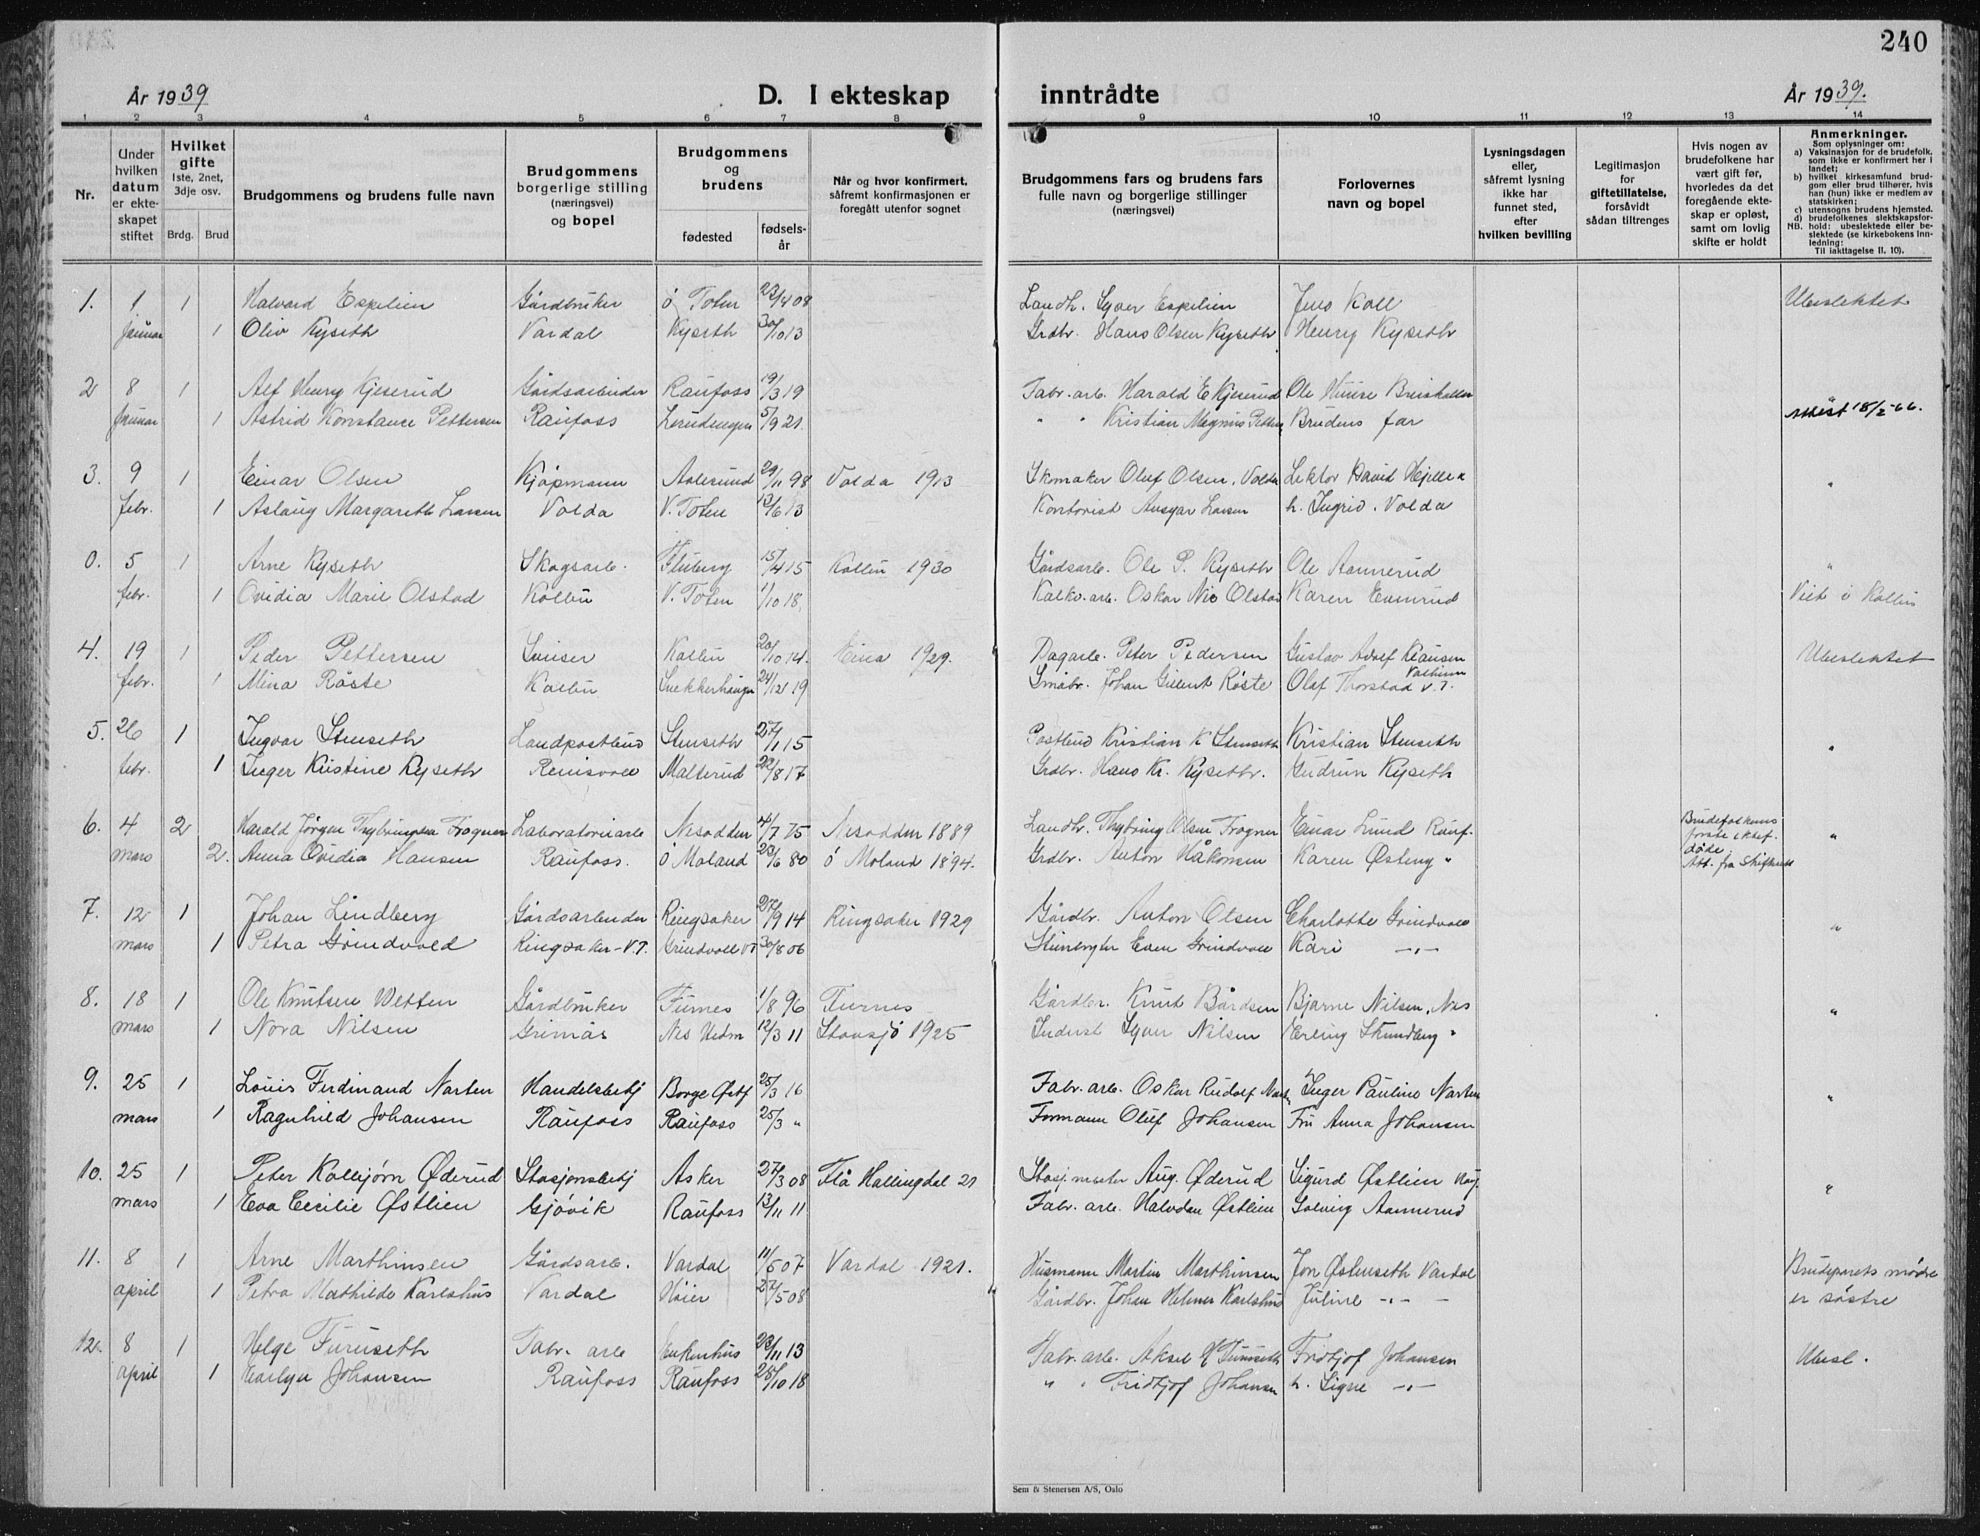 240
År 1939
D. I ekteskap inntrådte
År 1939.
1 2 3 4 5 6 7 8 9 10 11 12 13 14
Nr.
Under hvilken datum er ekteskapet stiftet
Hvilket gifte 1ste, 2net, 3dje osv.
Brdg. Brud
Brudgommens og brudens fulle navn
Brudgommens borgerlige stilling (næringsvei) og bopel
Brudgommens og brudens
fødested
fødselsår
Når og hvor konfirmert, såfremt konfirmasjonen er foregått utenfor sognet
Brudgommens fars og brudens fars fulle navn og borgerlige stillinger (næringsvei)
Forlovernes navn og bopel
Lysningsdagen eller, såfremt lysning ikke har funnet sted, efter hvilken bevilling
Legitimasjon for giftetillatelse, forsåvidt sådan tiltrenges
Hvis nogen av brudefolkene har vært gift før, hvorledes da det foregående ekteskap er opløst, samt om lovlig skifte er holdt
Anmerkninger.
Som oplysninger om:
a) Vaksinasjon for de brudefolk, som ikke er konfirmert her i landet;
b) hvilket kirkesamfund brudgom eller brud tilhører, hvis han (hun) ikke er medlem av statskirken;
c) utensogns brudens hjemsted.
d) brudefolkenes slektskapsforhold: ubeslektede eller beslektede (se kirkebokens innledning:
NB. Til iakttagelse II. 10).
1. 1 1 Halvard Espelien Gårdbruker Ö. Toten 22/4 08 Landh. Syver Espelien Jens Koll Ubeslektet
januar 1 Oliv Kyseth Vardal Kyseth 30/10 13 Grdbr. Hans Olsen Kyseth Henry Kyseth
2 8 1 Alf Henry Kjeserud Gårdsarbeider Raufoss 19/3 19 Fabr. arb. Harald E Kjeserud Ole Huuse
januar 1 Astrid Konstance Pettersen Raufoss 5/9 21. " " Kristian Magnus Brudens far 18/2-66.
3. 9 1 Einar Olsen Kjöpmann Aalesund 29/11 98 Volda 1913 Skomaker Oluf Olsen, Volda Lektor David Hjelle "
febr. 1 Aslaug Margareth Larsen Volda V. Toten 13/6 13 Kontorist Ansgar Larsen h. Ingrid. Volda
0. 5 1 Arne Kyseth Skogsarb. Fluberg 15/4 15 Kolbu 1930 Gårdsarb. Ole P. Kyseth Ole Aannerud "
febr. 1 Ovidia Marie Olstad Kolbu V. Toten 11/10 18. Kalkv. arb. Oskar Nic Olstad Karen Viet i Kolbu
4. 19 1 Peder Pettersen Kolbu 20/10 14. Eina 1929. Dagarb. Peter Pedersen Gustav Adolf Klausen Ubeslektet
febr. 1 Mina Röste Kolbu Snekkerhaugen 24/12 19 Småbr. Johan Gilbert Röste Olaf Thorstad V. T.
5. 26 1 Ingvar Stenseth Landpostbud Stenseth 27/1 15 Postbud Kristian K Stenseth Kristian Stenseth "
febr. 1 Inger Kristine Kyseth Reinsvoll Malterud 22/8 17 Grdbr. Hans Kr. Kyseth. Gudrun Kyseth
6. 4 2 Harald Jörgen Frogner Laboratoriearb Nesodden 4/7 75 Nesodden 1889 Landh. Thybring Olsen Frogner Einar Lund Rauf. Brudefolkenes första ektef. döde "
mars 2. Anna Ovidia Hansen Raufoss. Ö Moland 23/6 80 Ö Moland 1894. Grdbr. Anton Håkonsen Karen Østeng " Att. fra Skifterett
7. 12 1 Johan Lindberg Gårdsarbeider Ringsaker 27/9 14 Ringsaker 1929 Gårdbr. Anton Olsen Charlotte Grindvold "
mars 1 Petra Grindvold Ringsaker - V.T. Grindvoll VT 30/8 06 Even Grindvoll Kari -"-
8. 18 1 Ole Knutsen Wetten Gårdbruker Furnes 1/8 96 Furnes Gårdbr. Knut Bårdsen Bjarne Nilsen, Nes "
mars 1 Nora Nilsen Nes Hedm 12/3 11 Stavsjö 1925 Inderst Syver Nilsen Erling Strandberg "
9. 25 1 Louis Ferdinand Narten Handelsbetj Borge Østf 25/3 16 Fabr. arb. Oskar Rudolf Inger Pauline Narten "
mars 1 Ragnhild Johansen Raufoss Raufoss 25/3 " Formann Oluf Johansen Fru Anna Johansen
10. 25 1 Peter Kolbjørn Øderud Stasjonsbetj Asker 27/3 08 Flå Hallingdal 21 Stasj. mester Aug. Øderud Sigurd Østlien "
mars 1 Eva Cecilie Østlien Gjövik Raufoss 13/11 11 Fabr. arb. Halvdan Østlien Solveig Aannerud
11. 8 1 Arne Marthinsen Gårdsarb. Vardal 11/5 07 Vardal 1921. Husmann Martin Marthinsen Jon Østenseth Vardal Brudeparets mødre
april 1 Petra Mathilde Karlshus Vardal Höier 27/5 08 Gårdbr. Johan Helmer Karlshus Juline -"- er søstre
12. 8 1 Helge Furuseth Fabr. arb Enkenhus 23/11 13 Fabr. arb. Aksel Fridtjof Johansen Ubesl.
april 1 Johansen Raufoss Raufoss 28/10 18 " " Fridtjof Johansen h. Signe -"-
Sem & Stenersen A/S, Oslo